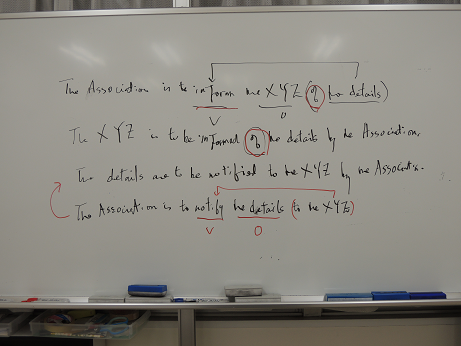 The Association is to inform the XYZ (of the details)
V O
The XYZ is to be informed of the details by the Association.
The details are to be notified to the XYZ by the Association.
The Association is to notify the details (to the XYZ)
V O
...